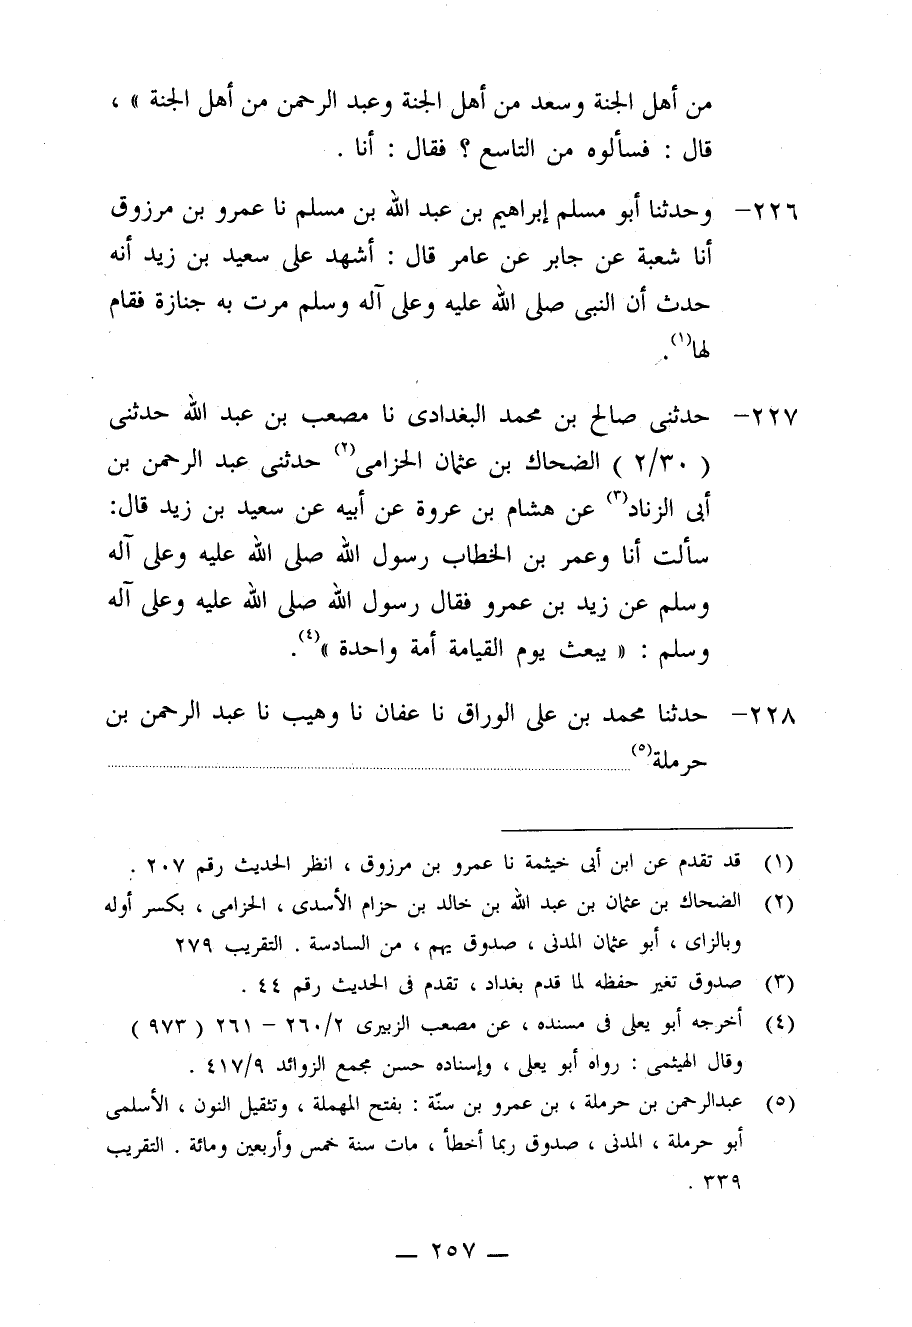 من أهل الجنة وسعد من أهل الجنة وعبد الرحمن من أهل الجنة » ،
قال : فسألوه من التاسع ؟ فقال : أنا .
٢٢٦- وحدثنا أبو مسلم إبراهيم بن عبد الله بن مسلم نا عمرو بن مرزوق
أنا شعبة عن جابر عن عامر قال : أشهد على سعيد بن زيد أنه
حدث أن النبى صلى الله عليه وعلى آله وسلم مرت به جنازة فقام
لها(١).
٢٢٧- حدثنى صالح بن محمد البغدادى نا مصعب بن عبد الله حدثنى
( ٢/٣٠ ) الضحاك بن عثمان الحزامى(٢) حدثنى عبد الرحمن بن
أبى الزناد(٣) عن هشام بن عروة عن أبيه عن سعيد بن زيد قال:
سألت أنا وعمر بن الخطاب رسول الله صلى الله عليه وعلى آله
وسلم عن زيد بن عمرو فقال رسول الله صلى الله عليه وعلى آله
وسلم : « يبعث يوم القيامة أمة واحدة »(٤).
٢٢٨- حدثنا محمد بن على الوراق نا عفان نا وهيب نا عبد الرحمن بن
حرملة(٥)
(١) قد تقدم عن ابن أبى خيثمة نا عمرو بن مرزوق ، انظر الحديث رقم ٢٠٧ .
(٢) الضحاك بن عثمان بن عبد الله بن خالد بن حزام الأسدى ، الحزامى ، بكسر أوله
وبالزاى ، أبو عثمان المدنى ، صدوق يهم ، من السادسة . التقريب ٢٧٩
(٣) صدوق تغير حفظه لما قدم بغداد ، تقدم فى الحديث رقم ٤٤ .
(٤) أخرجه أبو يعلى فى مسنده ، عن مصعب الزبيرى ٢٦٠/٢ - ٢٦١ ( ٩٧٣ )
وقال الهيثمى : رواه أبو يعلى ، وإسناده حسن مجمع الزوائد ٤١٧/٩ .
(٥) عبدالرحمن بن حرملة ، بن عمرو بن سنّة : بفتح المهملة ، وتثقيل النون ، الأسلمى
أبو حرملة ، المدنى ، صدوق ربما أخطأ ، مات سنة خمس وأربعين ومائة . التقريب
٣٣٩ .
— ٢٥٧ —